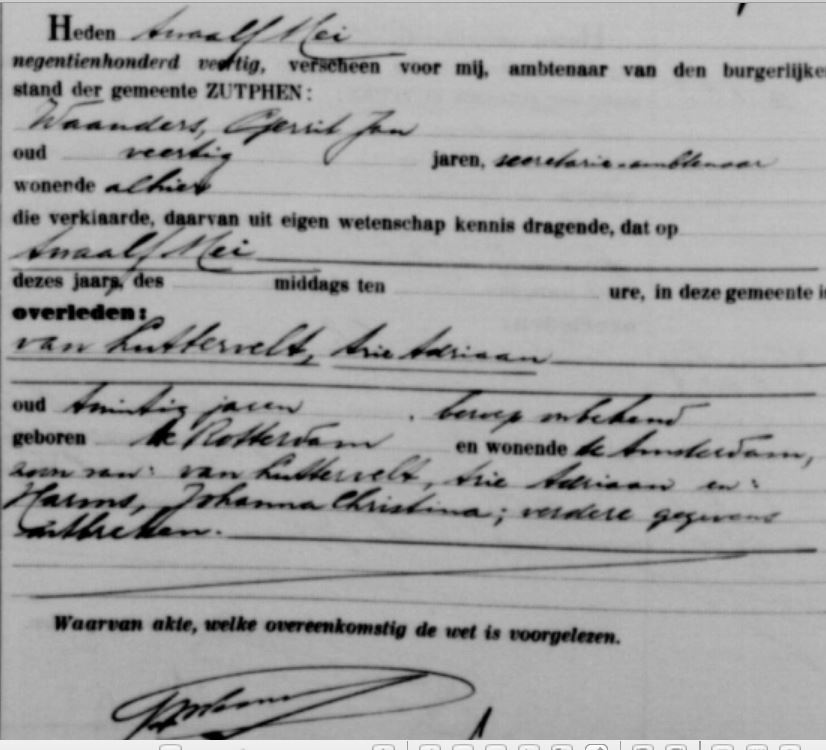 Heden twaalf Mei
negentienhonderd veertig, verscheen voor mij, ambtenaar van den burgerlijke
stand der gemeente ZUTPHEN:
Waanders, Gerrit Jan
oud veertig jaren, secretarie-ambtenaar
wonende alhier
die verklaarde, daarvan uit eigen wetenschap kennis dragende, dat op
twaalf Mei
dezes jaars, des middags ten ure, in deze gemeente i
overleden:
van Luttervelt, Arie Adriaan
oud twintig jaren . beroep onbekend
geboren te Rotterdam en wonende te Amsterdam,
zoon van: van Luttervelt, Arie Adriaan en:
Harms, Johanna Christina; verdere gegevens
ontbreken.
Waarvan akte, welke overeenkomstig de wet is voorgelezen.